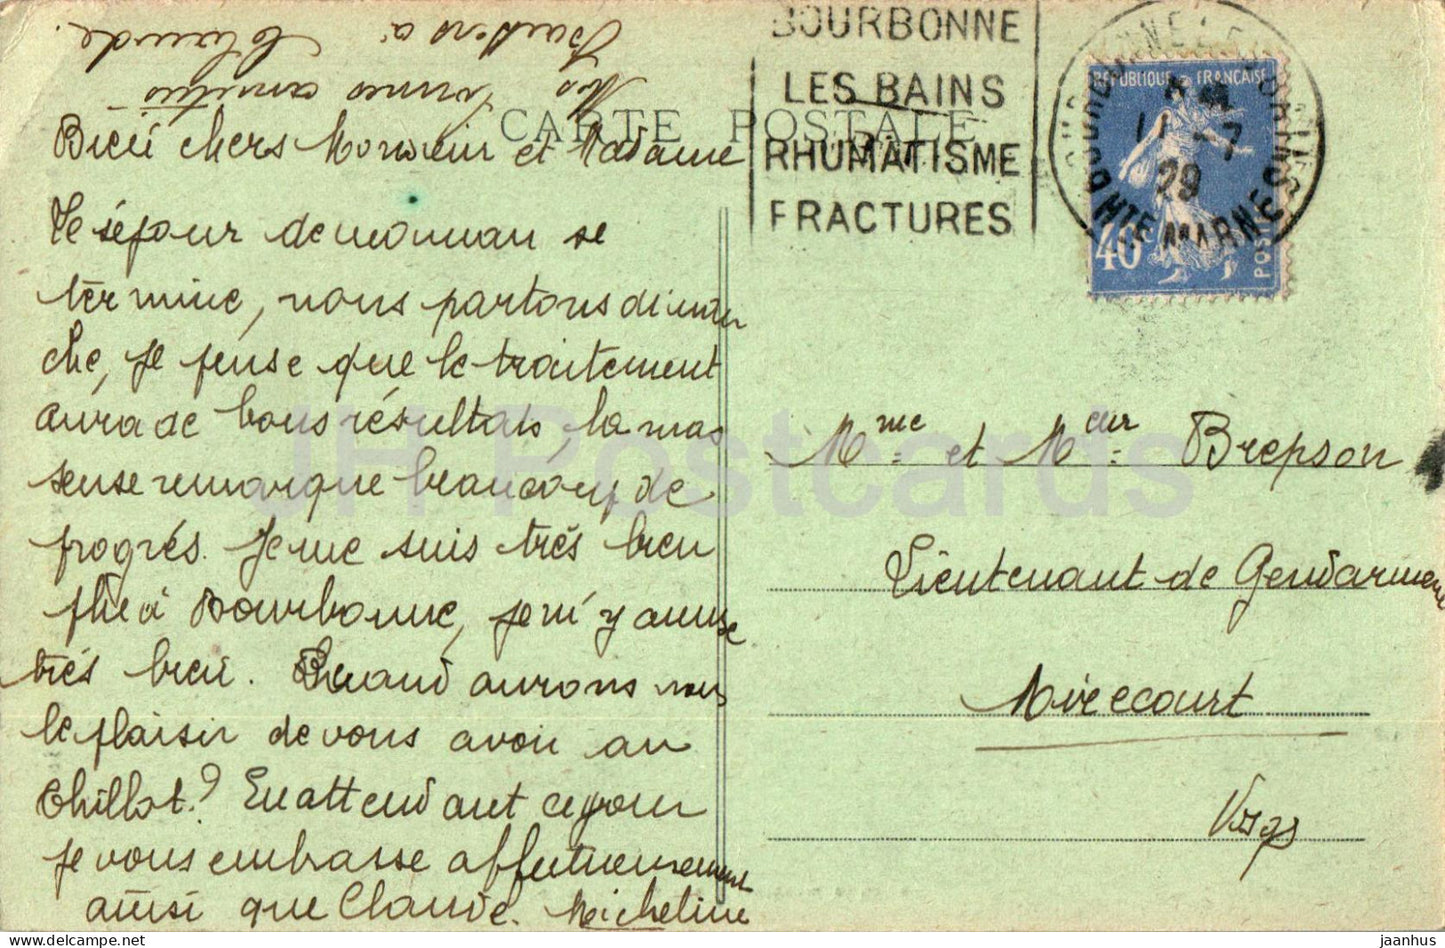 Nos bonnes amitiés
Baisers à Claude.
CARTE POSTALE
Bien chers Monsieur et Madame
Le séjour de maman se
termine, nous partons diman
che, je pense que le traitement
aura de bons résultats, la mas
seuse remarque beaucoup de
progrés. Je me suis très bien
plue à Bourbonne, je m'y amuse
très bien. Quand aurons nous
le plaisir de vous avoir au
Thillot? En attendant ce jour
je vous embrasse affectueusement
ainsi que Claude. Micheline
BOURBONNE
LES BAINS
RHUMATISME
FRACTURES
BOURBONNE LES BAINS
11 -7
29
HTE MARNE
REPUBLIQUE FRANÇAISE
40c
POSTES
Mme et Meur Brepson
Lieutenant de Gendarmerie
Mirecourt
Vosges
JH Postcards
jaanhus @ delcampe.net